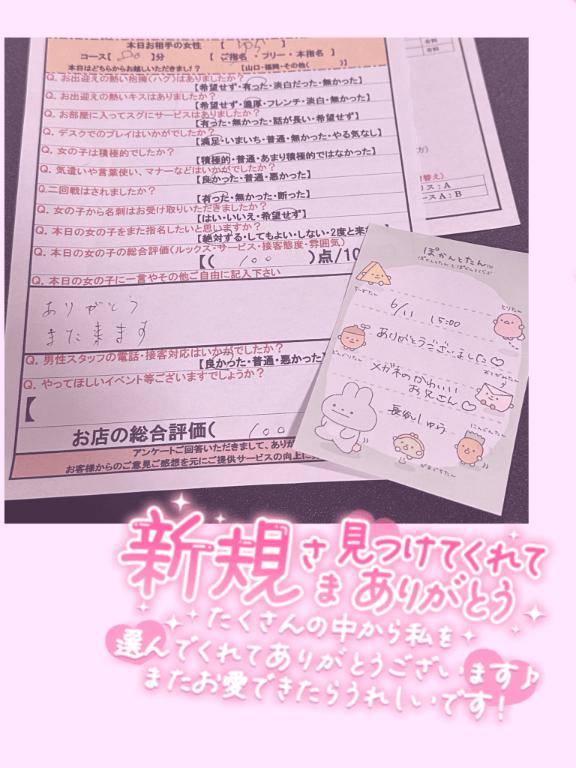 本日お相手の女性【 ゆら 】
コース【 】分 【 ご指名・フリー・本指名】
本日はどちらからお越しいただきまし？ 【山口・福岡・その他( )】
Q. お出迎えの熱い抱擁(ハグ)はありましたか？
【希望せず・有った・淡白だった・無かった】
Q. お出迎えの熱いキスはありましたか？
【希望せず・濃厚・フレンチ・淡白・無かった】
Q. お部屋に入ってスグにサービスはありましたか？
【有った・無かった・話が長い・希望せず】
Q. デスクでのプレイはいかがでしたか？
【満足・いまいち・普通・無かった・やる気なし】
Q. 女の子は積極的でしたか？
【積極的・普通・あまり積極的ではなかった】
Q. 気遣いや言葉使い、マナーなどはいかがでしたか？
【良かった・普通・悪かった】
Q.二回戦はされましたか？
【有った・無かった・断った】
Q. 女の子から名刺はお受け取りいただきましたか？
【はい・いいえ・希望せず】
Q. 本日の女の子をまた指名したいと思いますか？
【絶対する・してもよい・しない・2度と来
Q. 本日の女の子の総合評価(ルックス・サービス・接客態度・雰囲気)
【( 100 )点/10
Q. 本日の女の子に一言やその他ご自由に記入下さい
ありがとう
また来ます
Q. 男性スタッフの電話・接客対応はいかがでしたか？
【良かった・普通・悪かった】
Q. やってほしいイベント等ございますでしょうか？
【
お店の総合評価( 100
アンケートご回答いただきまして、あり
お客様からのご意見ご感想を元にご提供サービスの向上に
替え)
ス：A
スA：B
ぽかんとたん
とりたん
6/11 15:00
ありがとうございました♡
どんぐりたん
メガネのかわいい
お兄さん♡
長谷しゅら
にんじんたん
がまぐちたん
新規さま 見つけてくれて
ありがとう
たくさんの中から私を
選んでくれてありがとうございます♪
またお愛できたらうれしいです！